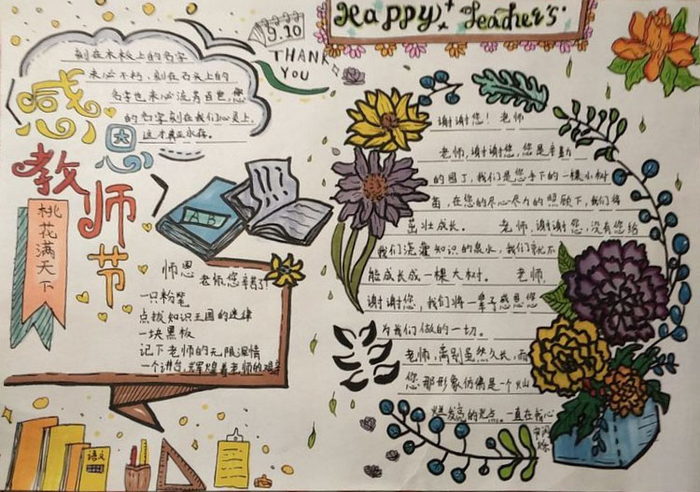 Happy Teacher's
9.10
THANK
YOU
刻在木板上的名字
未必不朽,刻在石头上的
名字也未必流芳百世,您
的名字刻在我们心灵上,
这才真正永存。
感恩
教师节
桃花满天下
AB
师恩
老师,您辛苦了
一只粉笔
点拨知识王国的迷律
一块黑板
记下老师的无限深情
一个讲台,辉煌着老师的艰辛
语文
谢谢您!老师
老师,谢谢您,您是辛勤
的园丁,我们是您手下的一棵小树
苗,在您的尽心尽力的照顾下,我们得
茁壮成长。 老师,谢谢您,没有您给
我们浇灌知识的泉水,我们就不
能成长成一棵大树。 老师,
谢谢您,我们将一辈子感恩您
为我们做的一切。
老师,离别虽然久长,而
您那形象仿佛是一个灿
的光点,一直在我心